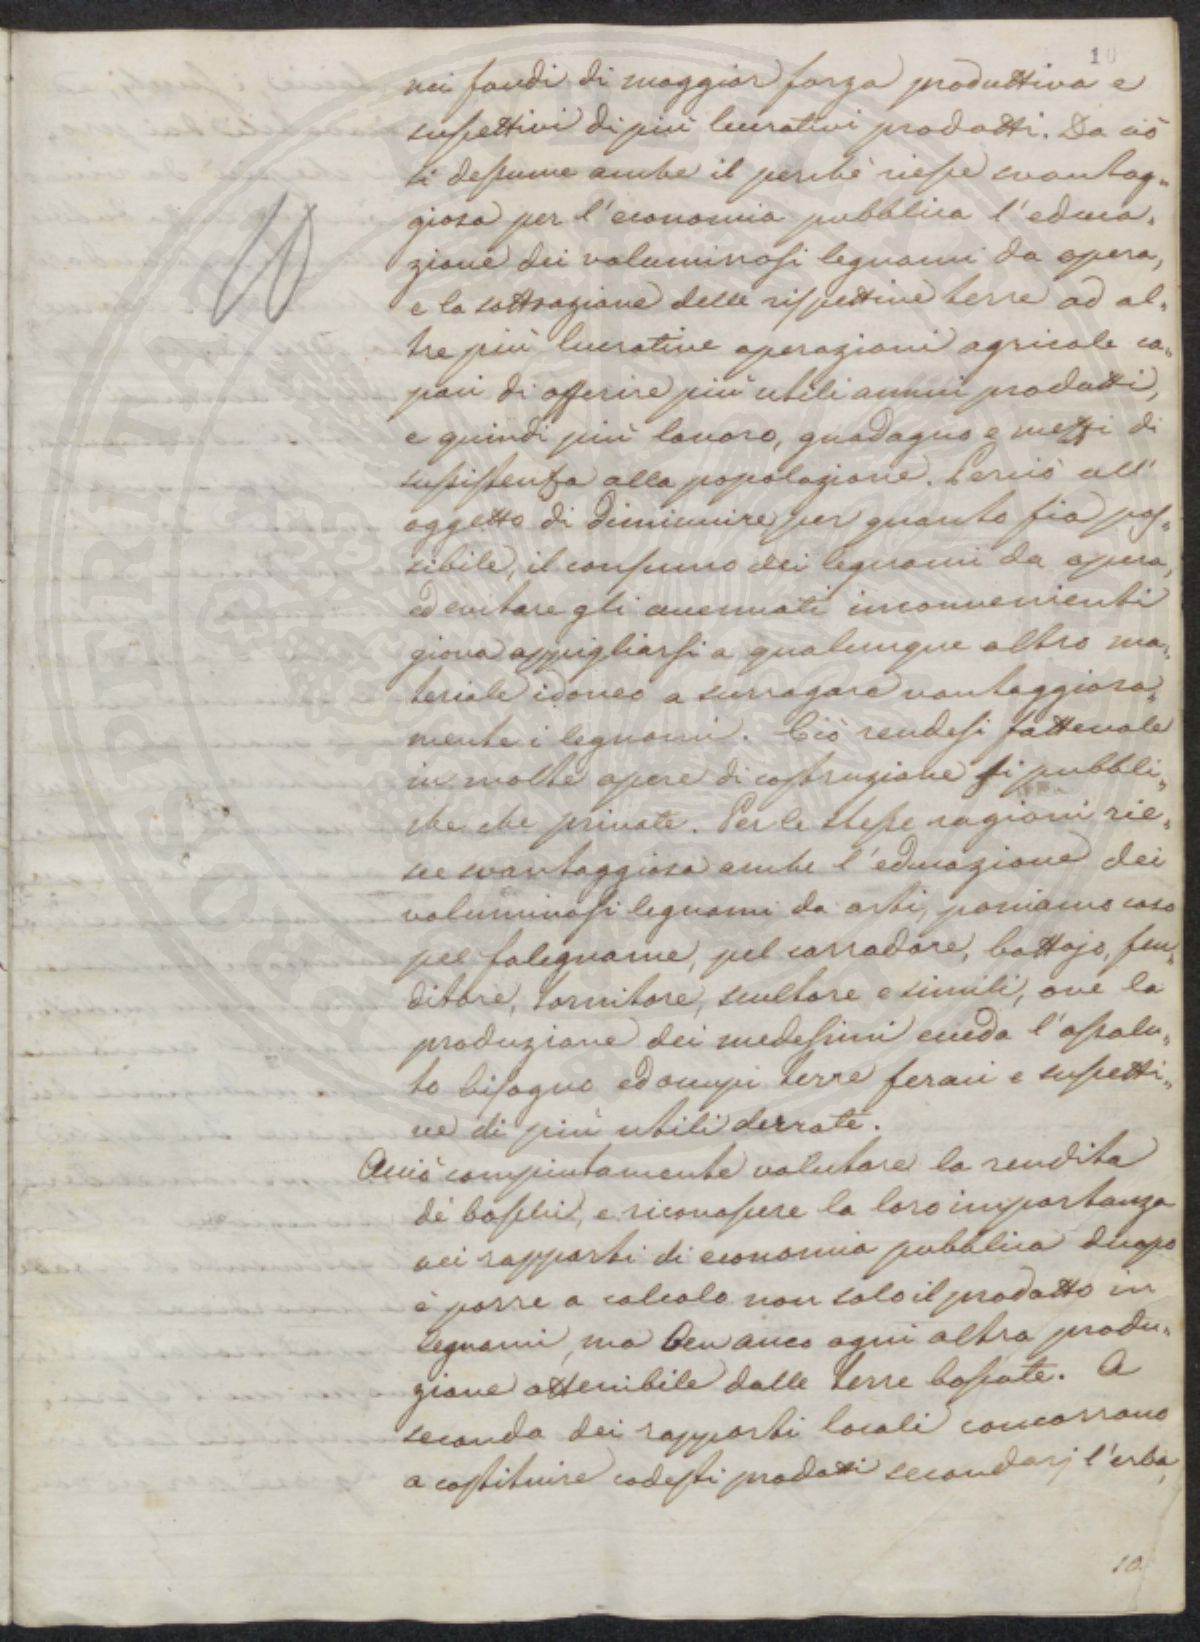 10
nei fondi di maggior forza produttiva e
suscettivi di più lucrativi prodotti. Da ciò
si desume anche il perchè riesce svantag„
giosa per l'economia pubblica l'educa„
zione dei voluminosi legnami da opera,
e la sottrazione delle rispettive terre ad al„
tre più lucrative operazioni agricole ca„
paci di offerire più utili annui prodotti,
e quindi più lavoro, guadagno e mezzi di
sussistenza alla popolazione. Perciò all'
oggetto di diminuire per quanto fia pos„
sibile, il consumo dei legnami da opera,
ed evitare gli accennati inconvenienti
giova appigliarsi a qualunque altro ma„
teriale idoneo a surrogare vantaggiosa„
mente i legnami. Ciò rendesi fattevole
in molte opere di costruzione sì pubbli„
che che private. Per le stesse ragioni rie„
sce svantaggiosa anche l'educazione dei
voluminosi legnami da arti, poniamo caso
pel falegname, pel carradore, bottajo, fen„
ditore, tornitore, scultore e simili, ove la
produzione dei medesimi ecceda l'assolu„
to bisogno ed occupi terre feraci e suscetti„
ve di più utili derrate.
Acciò compiutamente valutare la rendita
de' boschi, e riconoscere la loro importanza
nei rapporti di economia pubblica duopo
è porre a calcolo non solo il prodotto in
legnami, ma ben anco ogni altra produ„
zione ottenibile dalle terre boscate. A
seconda dei rapporti locali concorrono
a costituire codesti prodotti secondarj l'erba,
10
PROSPERITATI